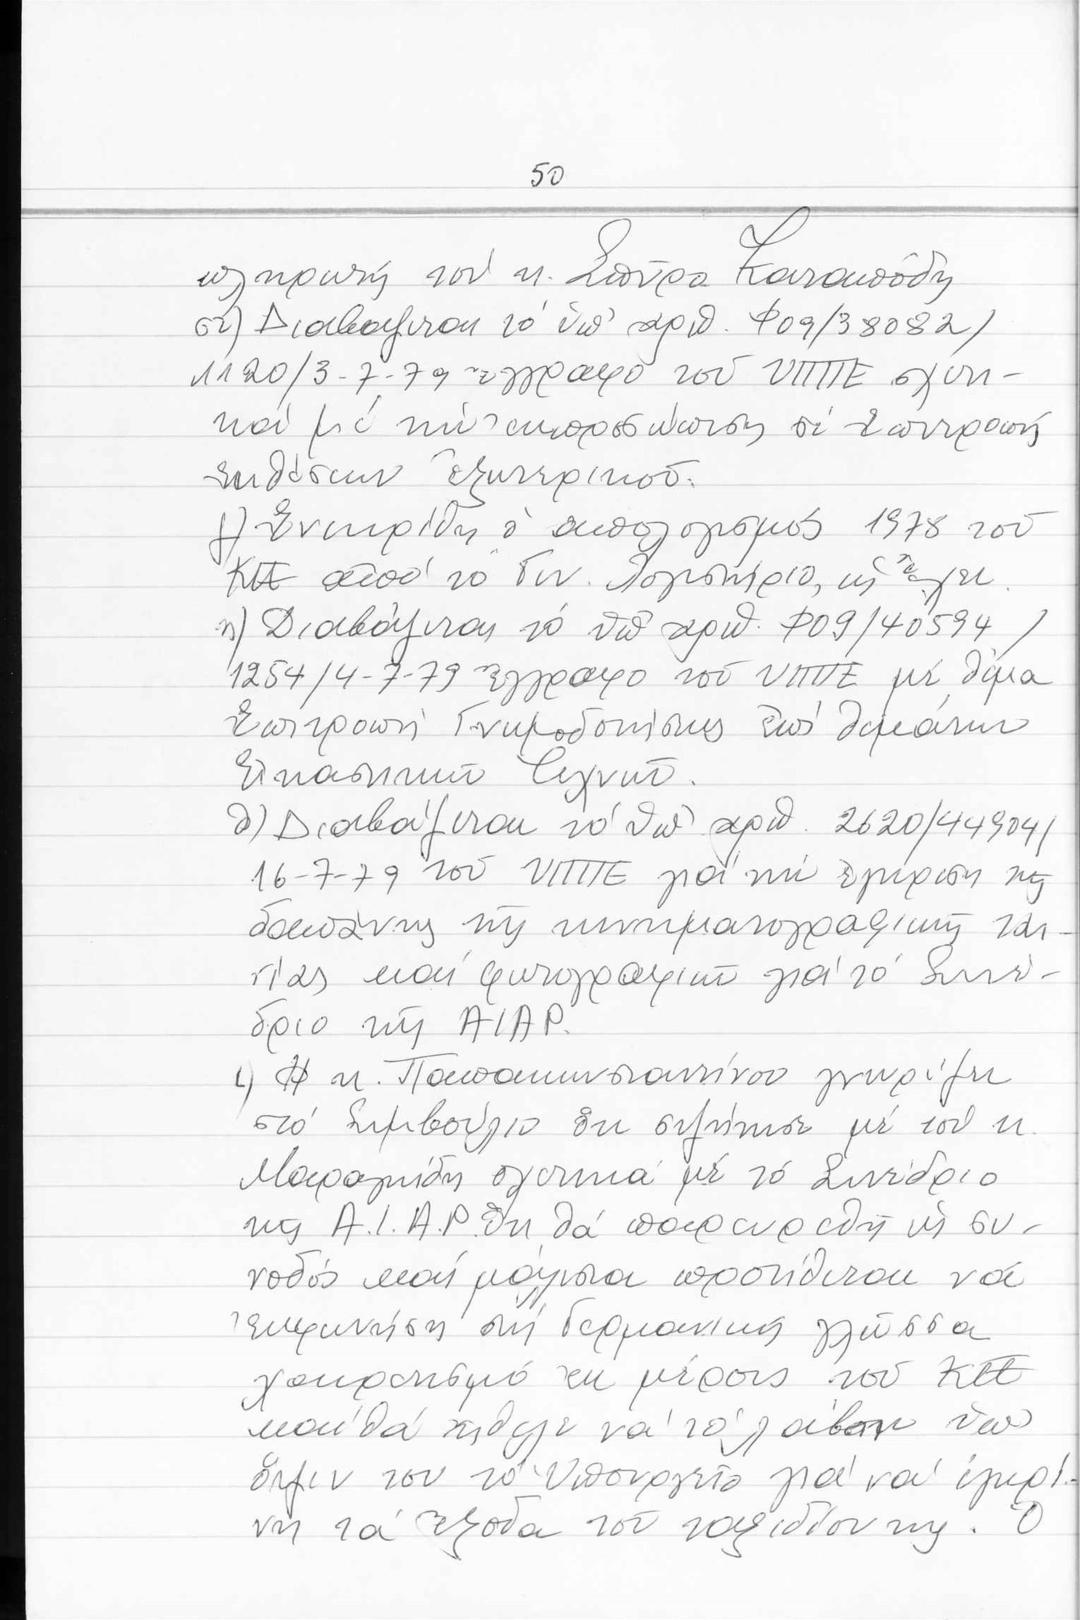 50
πληρωμή τοῦ κ. Σπύρο Καταπόδη
στ) Διαβάζεται τό ὑπ' ἀριθ. Φ09/38082/
1120/3-7-79 ἔγγραφο τοῦ ΥΠΠΕ σχετι-
κά μέ τήν ἐκπροσώπηση σέ ἐπιτροπή
ἐκθέσεων ἐξωτερικοῦ.
ζ) Ἐνεκρίθη ὁ ἀπολογισμός 1978 τοῦ
ΚΠΕ ἀπό τό Γεν. Λογιστήριο, ὡς ἔχει.
η) Διαβάζεται τό ὑπ' ἀριθ. Φ09/40594/
1254/4-7-79 ἔγγραφο τοῦ ΥΠΠΕ μέ θέμα
Ἐπιτροπή Γνωμοδοτήσεως ἐπί θεμάτων
Εἰκαστικῶν Τεχνῶν.
θ) Διαβάζεται τό ὑπ' ἀριθ. 2620/44904/
16-7-79 τοῦ ΥΠΠΕ γιά τήν ἔγκριση τῆς
δαπάνης τῆς κινηματογραφικῆς ται-
νίας καί φωτογραφιῶν γιά τό Συνέ-
δριο τῆς AIAP.
ι) Ἡ κ. Παπακωνσταντίνου γνωρίζει
στό Συμβούλιο ὅτι συζήτησε μέ τόν κ.
Μαραγκίδη σχετικά μέ τό Συνέδριο
τῆς A.I.A.P. ὅτι θά παρευρεθῆ ὡς συ-
νοδός καί μάλιστα προτίθεται νά
ἐκφωνήση στή Γερμανική γλῶσσα
χαιρετισμό ἐκ μέρους τοῦ ΚΠΕ
καί θά ἤθελε νά τό λάβει ὑπ'
ὄψιν του τό Ὑπουργεῖο γιά νά ἐγκρί-
νη τά ἔξοδα τοῦ ταξιδίου της. Ὁ